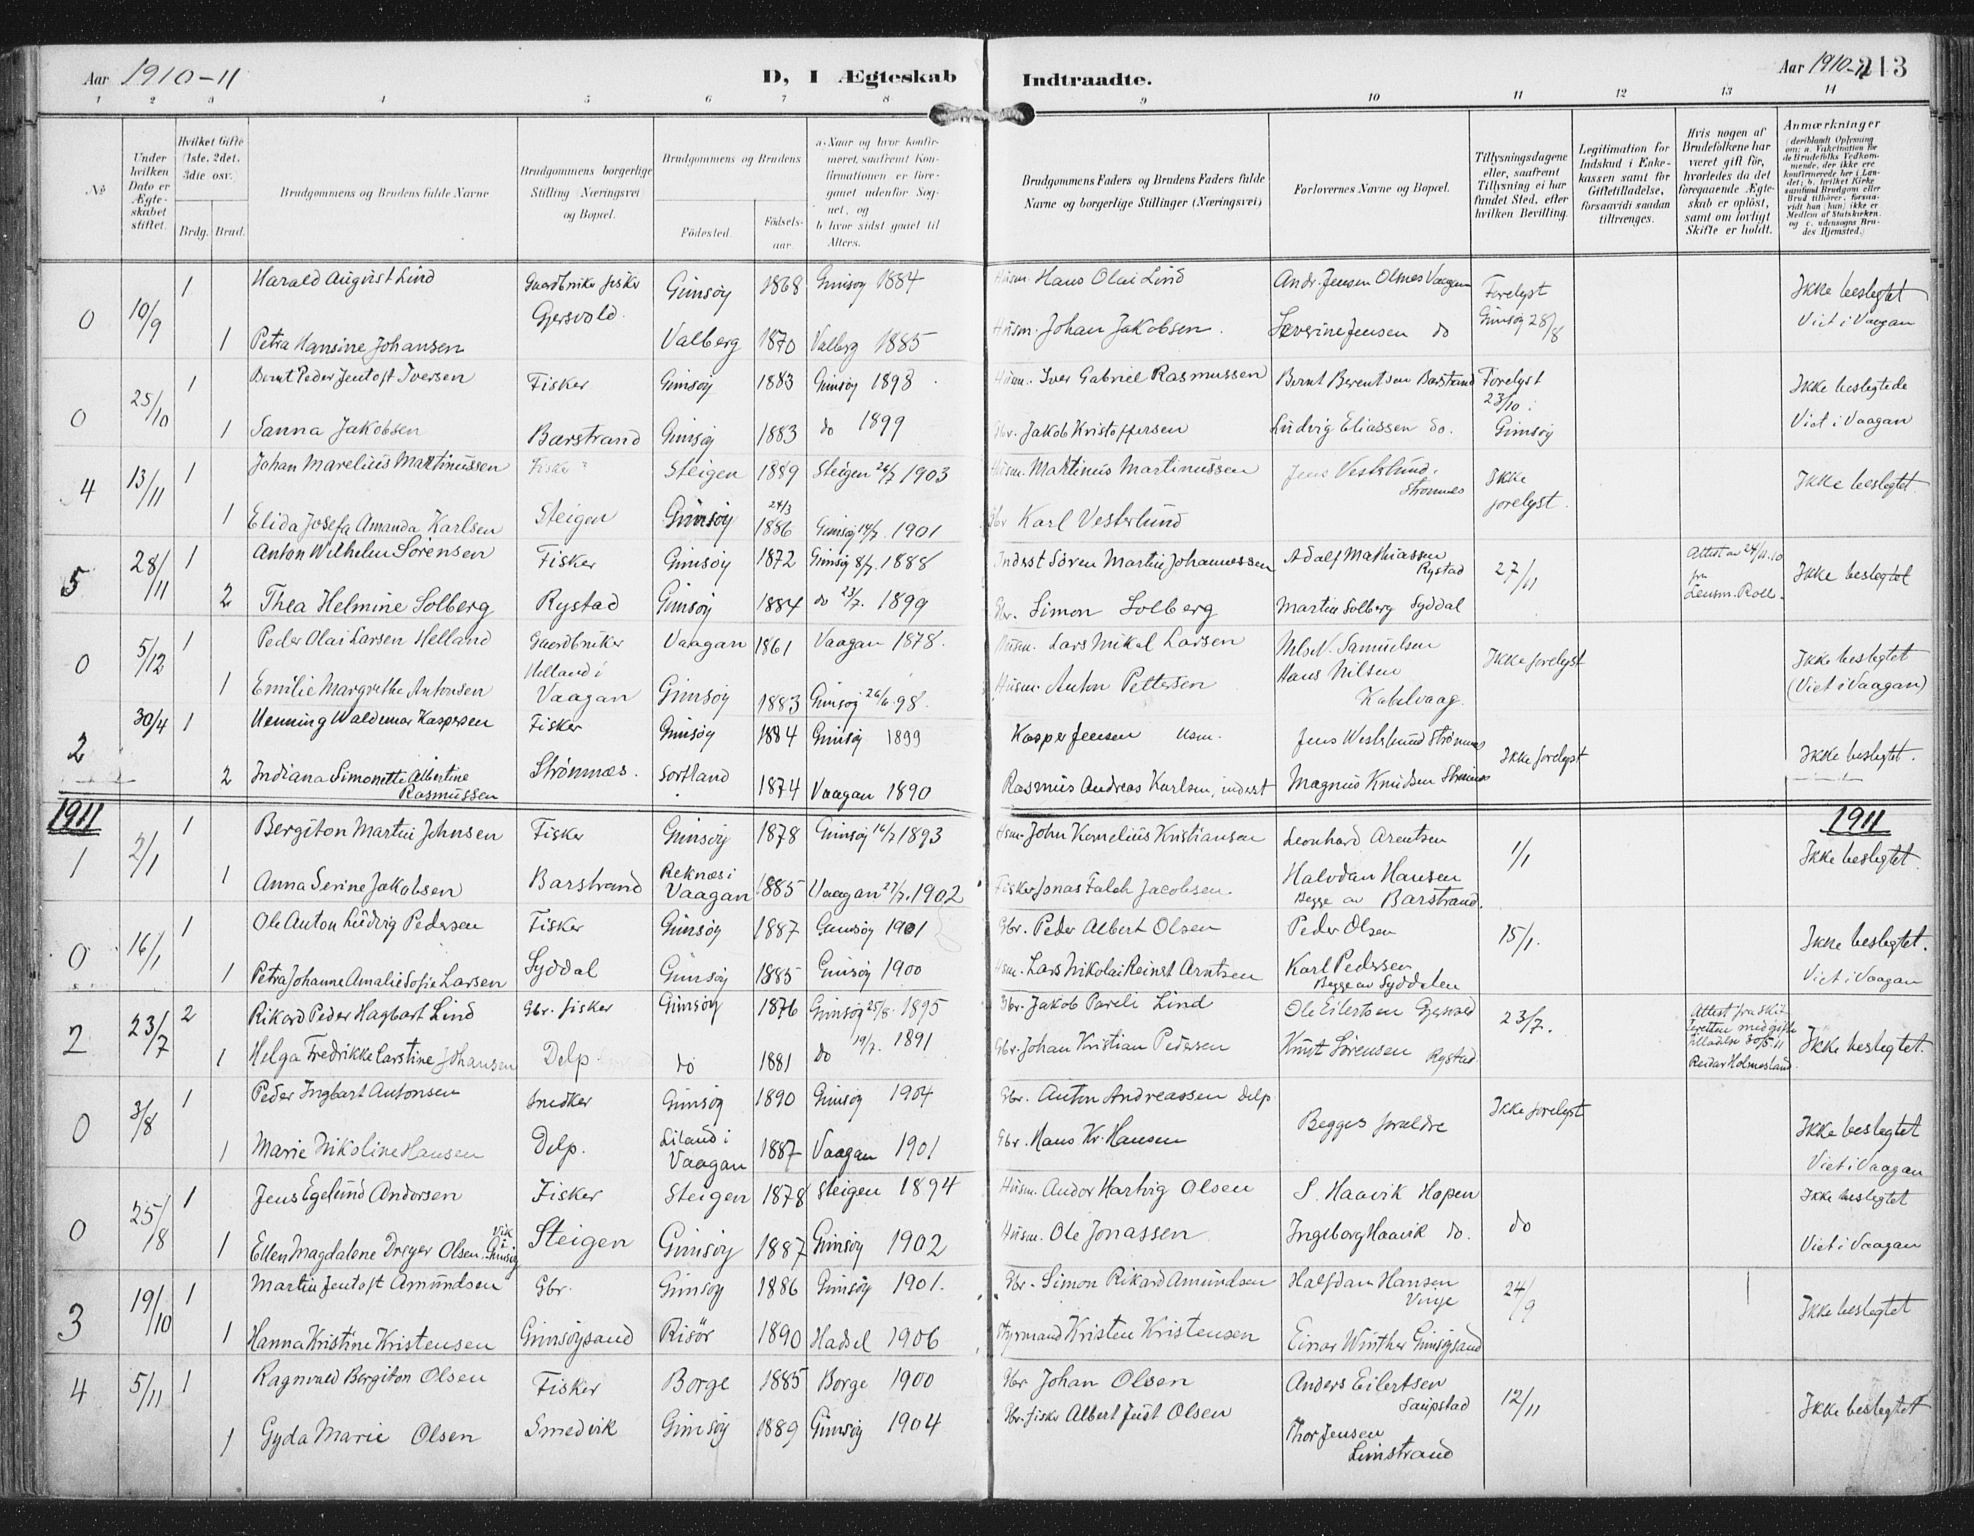 Aar 1910-11
D, I Ægteskab
Indtraadte.
Aar 1910-11
213
1 2 3 4 5 6 7 8 9 10 11 12 13 14
No
Under hvilken Dato er Ægteskabet stiftet.
Hvilket Gifte (1ste, 2det, 3die osv.
Brdg. Brud.
Brudgommens og Brudens fulde Navne
Brudgommens borgerlige Stilling (Næringsvei og Bopæl.
Brudgommens og Brudens
Fødested. Fødselsaar.
a. Naar og hvor konfirmeret, saafremt Konfirmationen er foregaaet udenfor Sognet, og
b. hvor sidst gaaet til Alters.
Brudgommens Faders og Brudens Faders fulde Navne og borgerlige Stillinger (Næringsvei)
Forlovernes Navne og Bopæl.
Tillysningsdagene eller, saafremt Tillysning ei har fundet Sted, efter hvilken Bevilling.
Legitimation for Indskud i Enkekassen samt for Giftetilladelse, forsaavidt saadan tiltrænges.
Hvis nogen af Brudefolkene har været gift før, hvorledes da det foregaaende Ægteskab er opløst, samt om lovligt Skifte er holdt.
Anmærkninger
0 19/9 1 Harald August Lind Gaardbruker fisker Gimsøy 1868 Gimsøy 1884 Husm. Hans Olai Lind Andr. Jensen Olsnes Vaagan Forelyst Gimsøy 28/8 Ikke beslegtet
Gjersvold.
1 Petra Hansine Johansen Valberg 1870 Valberg 1885 Husm. Johan Jakobsen. Severine Jensen do Viet i Vaagan
0 25/10 1 Bernt Peder Jentoft Iversen Fisker Gimsøy 1883 Gimsøy 1898 Husm. Iver Gabriel Rasmussen Bernt Berentsen Barstrand Forelyst 23/10 i Gimsøy Ikke beslegtede
1 Sanna Jakobsen Barstrand Gimsøy 1883 do 1899 Gbr. Jakob Kristoffersen Ludvig Eliassen do. Viet i Vaagan
4 13/11 1 Johan Marelius Martinussen Fisker Steigen 1889 Steigen 26/7 1903 Husm. Martinus Martinussen Jens Vesterlund. Strømnes Ikke forelyst. Ikke beslegtet.
1 Elida Josefa Amanda Karlsen Steigen Gimsøy 24/3 1886 Gimsøy 14/7. 1901 Gbr Karl Vesterlund
5 28/11 1 Anton Wilhelm Sørensen Fisker Gimsøy 1872 Gimsøy 8/7. 1888 Inderst Søren Martin Johannessen Adolf Mathiassen Rystad 27/11 Attest av 24/11.10 fra Lensm. Roll. Ikke beslegtet
2 Thea Helmine Solberg Rystad Gimsøy 1884 do 23/7. 1899 Gbr. Simon Solberg Martin Solberg Syddal
0 5/12 1 Peder Olai Larsen Helland Gaardbruker Vaagan 1861 Vaagan 1878. Husm. Lars Mikal Larsen Nils N. Samuelsen Ikke forelyst Ikke beslegtet
Helland i Vaagan Hans Nilsen
1 Emilie Margrethe Antonsen Gimsøy 1883 Gimsøy 26/6. 98. Husm. Anton Pettersen Kabelvaag. (Viet i Vaagan)
2 30/4 1 Henning Waldemar Kaspersen Fisker Gimsøy 1884 Gimsøy 1899 Kasper Jensen Hsm. Jens Westerlund Strømnes Ikke forelyst Ikke beslegtet.
2 Indiana Simonette Albertine Rasmussen Strømnæs. Sortland 1874 Vaagan 1890 Rasmus Andreas Karlsen, inderst Magnus Knudsen Strømnes
1911
1911
1 2/1 1 Bergiton Martin Johnsen Fisker Gimsøy 1878 Gimsøy 16/7 1893 Hsm. John Kornelius Kristiansen Leonhard Arentsen 1/1 Ikke beslegtet.
1 Anna Serine Jakobsen Barstrand Reknæs i Vaagan 1885 Vaagan 27/7. 1902 Fisker Jonas Falch Jacobsen. Halvdan Hansen Begge av Barstrand.
0 16/1 1 Ole Anton Ludvig Pedersen Fisker Gimsøy 1887 Gimsøy 1901 Gbr. Peder Albert Olsen Peder Olsen 15/1. Ikke beslegtet.
1 Petra Johanne Amalie Sofie Larsen Syddal Gimsøy 1885 Gimsøy 1900 Hsm. Lars Nikolai Reinst Arntsen Karl Pedersen Begge av Syddalen Viet i Vaagan
2 23/7 2 Rikard Peder Hagbart Lind Gbr. fisker Gimsøy 1876 Gimsøy 25/8. 1895 Gbr. Jakob Pareli Lind Ole Eilertsen Gjersvold 23/7. Attest fra skifteretten med gifte tilladelse 30/5 11 Reidar Holmesland. Ikke beslegtet.
1 Helga Fredrikke Carstine Johansen Delp. do 1881 do 19/7. 1891 Gbr. Johan Kristian Pedersen Knut Sørensen Rystad
0 3/8 1 Peder Ingbart Antonsen Snedker Gimsøy 1890 Gimsøy 1904 Gbr. Anton Andreassen Delp Begges foreldre Ikke forelyst Ikke beslegtet
1 Marie Nikoline Hansen Delp. Liland i Vaagan 1887 Vaagan 1901 Gbr. Hans Kr. Hansen Viet i Vaagan
0 25/8 1 Jens Egelund Andorsen Fisker Steigen 1878 Steigen 1894 Husm. Andor Hartvig Olsen S. Haavik Hopen do Ikke beslegtet
1 Ellen Magdalene Dreyer Olsen. Vik i Gimsøy Steigen Gimsøy 1887 Gimsøy 1902 Husm. Ole Jonassen. Ingeborg Haavik do. Viet i Vaagan
3 19/10 1 Martin Jentoft Amundsen Gbr. Gimsøy 1886 Gimsøy 1901. Gbr. Simon Rikard Amundsen Halfdan Hansen Vinje 24/9 Ikke beslegtet
1 Hanna Kristine Kristensen Gimsøysand Risör 1890 Hadsel 1906 Styrmand Kristen Kristensen Einar Winther Gimsøysand
4 5/11 1 Ragnvald Bergiton Olsen Fisker Borge 1885 Borge 1900 Gbr Johan Olsen Anders Eilertsen Saupstad 12/11 Ikke beslegtet
1 Gyda Marie Olsen Smedvik Gimsøy 1889 Gimsøy 1904 Gbr. fisker Albert Just Olsen Thor Jensen Limstrand